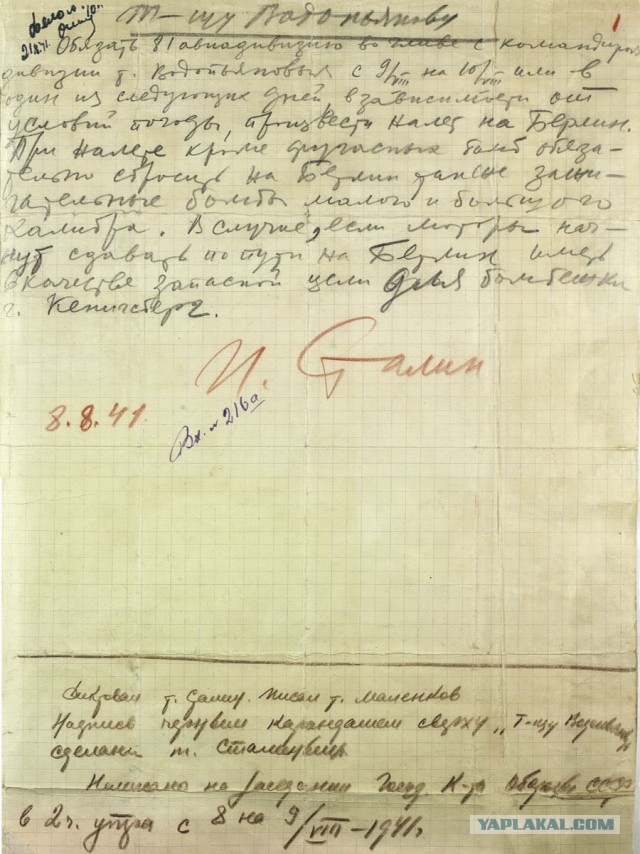 Т-щу Водопьянову
1
Обязать 81 авиадивизию во главе с командиром
дивизии т. Водопьяновым с 9/VIII на 10/VIII или в
один из следующих дней, в зависимости от
условий погоды, произвести налет на Берлин.
При налете кроме фугасных бомб обяза-
тельно сбросить на Берлин также зажи-
гательные бомбы малого и большого
калибра. В случае, если моторы нач-
нут сдавать по пути на Берлин иметь
в качестве запасной цели для бомбежки
г. Кенигсберг.
И. Сталин
8.8.41
Вх. № 216а
Диктовал т. Сталин. Писал т. Маленков
Надпись черным карандашем сверху „Т-щу
сделана т. Сталиным.
Написано на заседании Госуд. К-та Обороны СССР
в 2 ч. утра с 8 на 9/VIII-1941г.
YAPLAKAL.COM